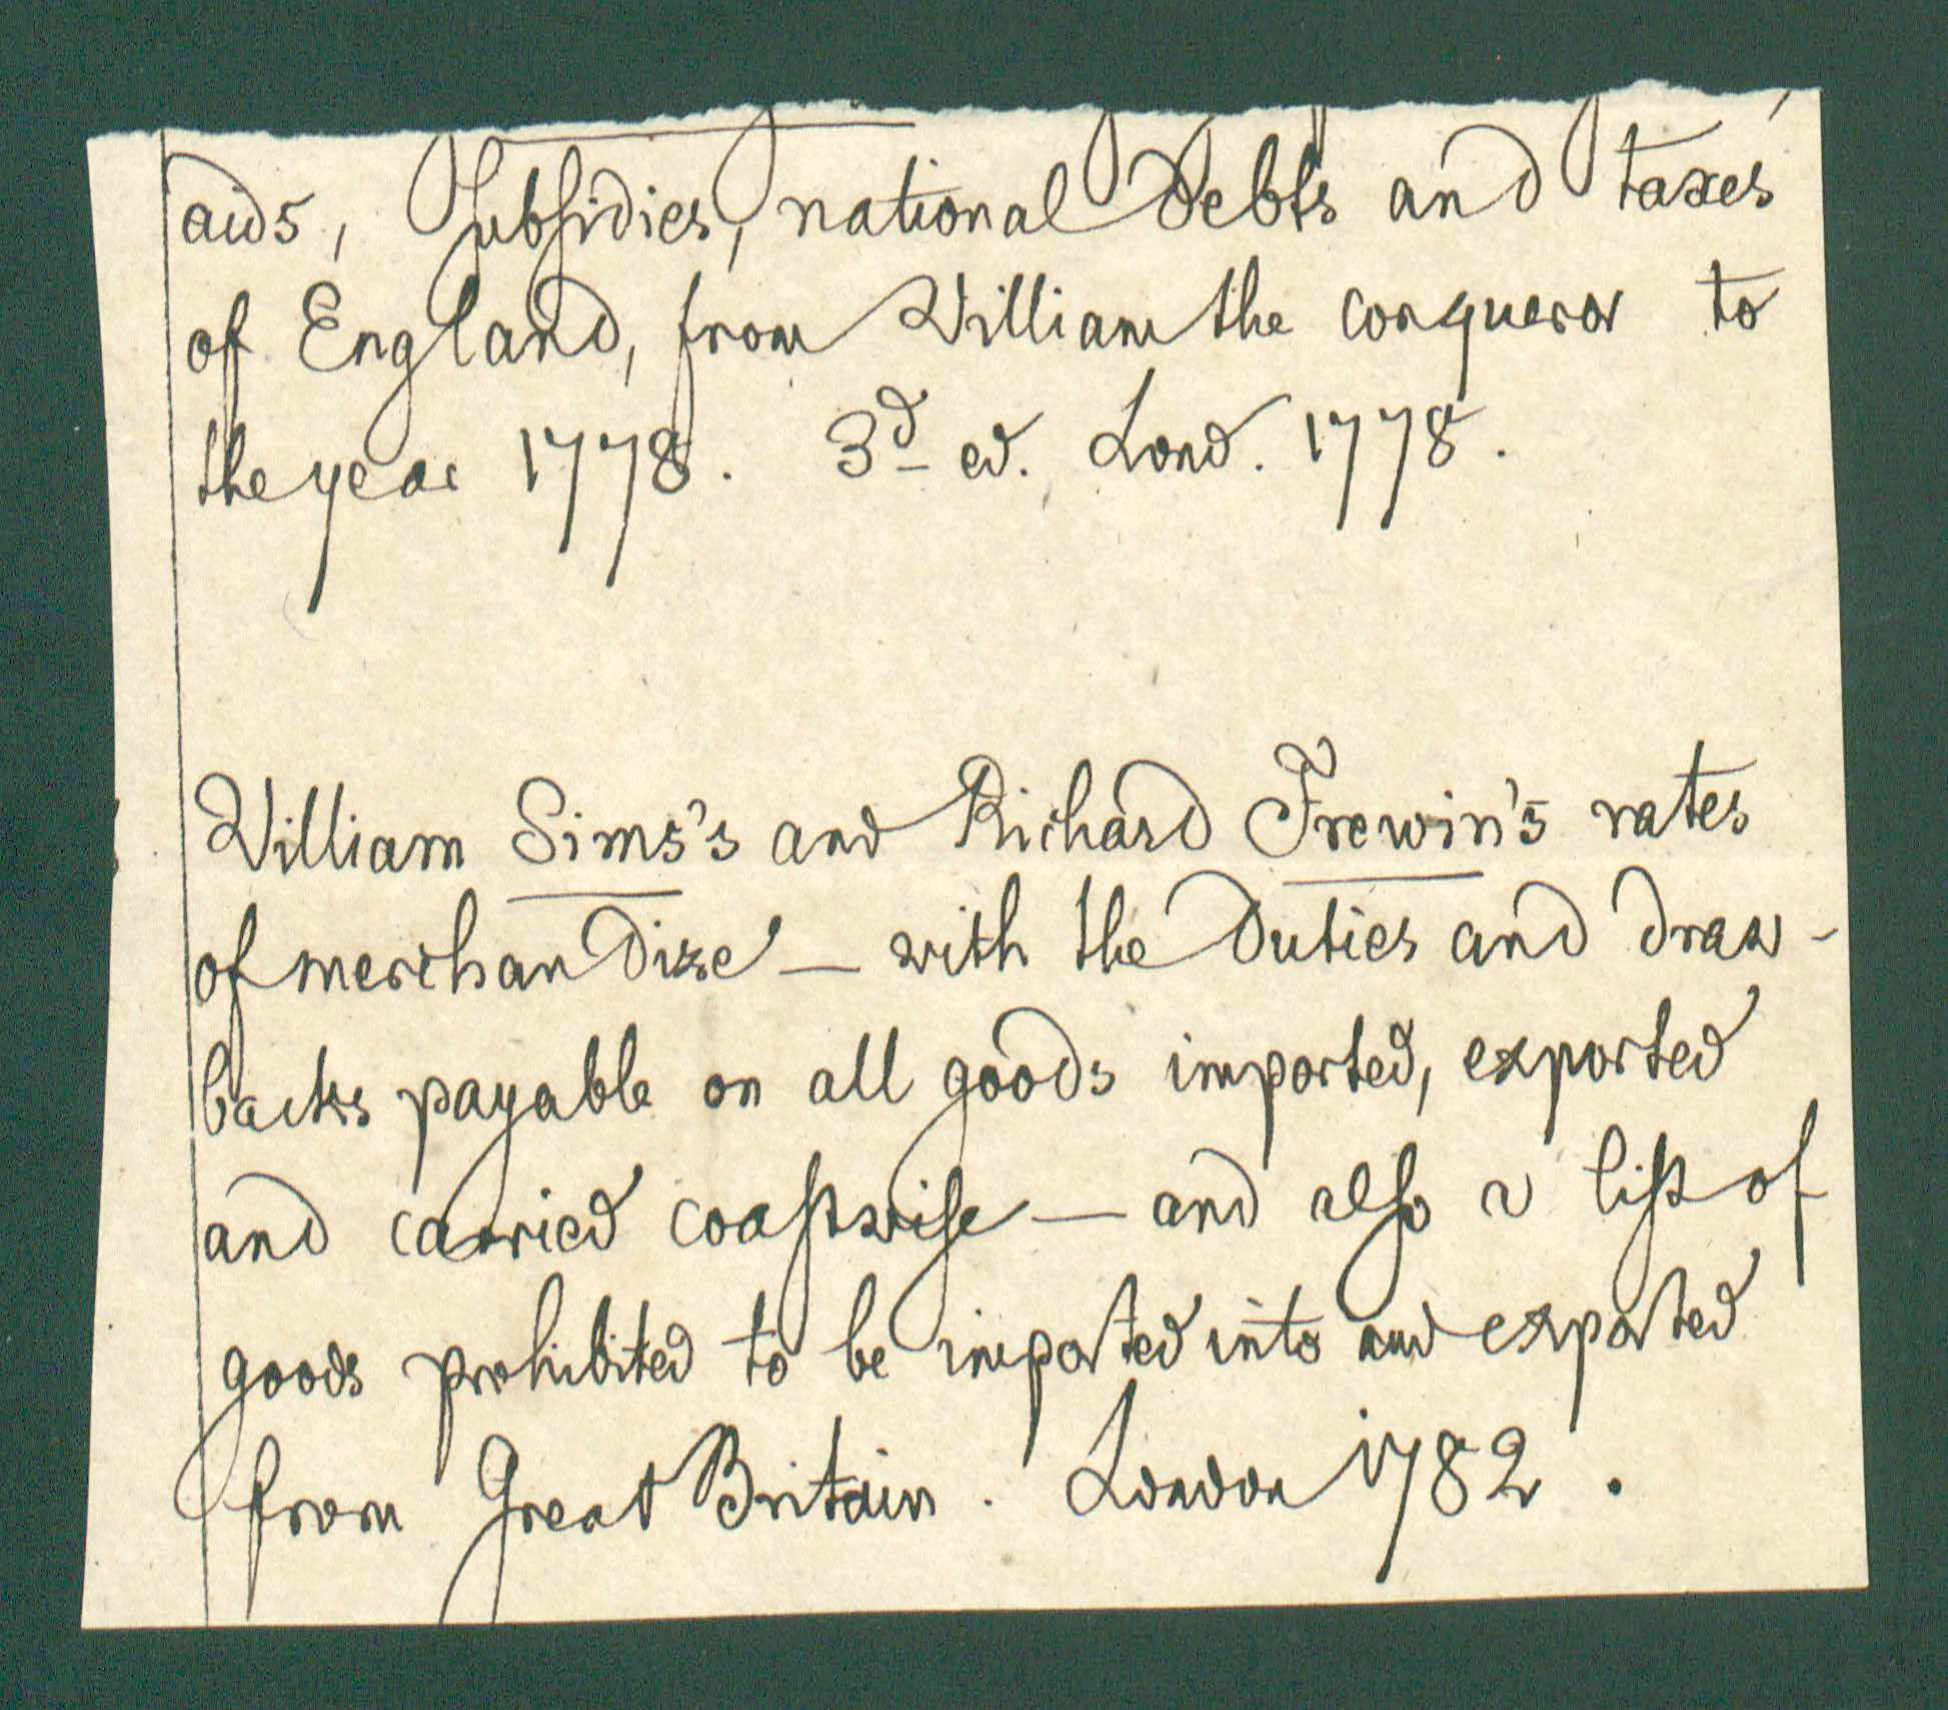 aids, subsidies, national debts and taxes
of England, from William the conqueror to
the year 1778. 3d ed. Lond. 1778.
William Sims's and Richard Frewin's rates
of merchandize — with the duties and draw-
backs payable on all goods imported, exported
and carried coastwise — and also a list of
goods prohibited to be imported into and exported
from Great Britain. London 1782.